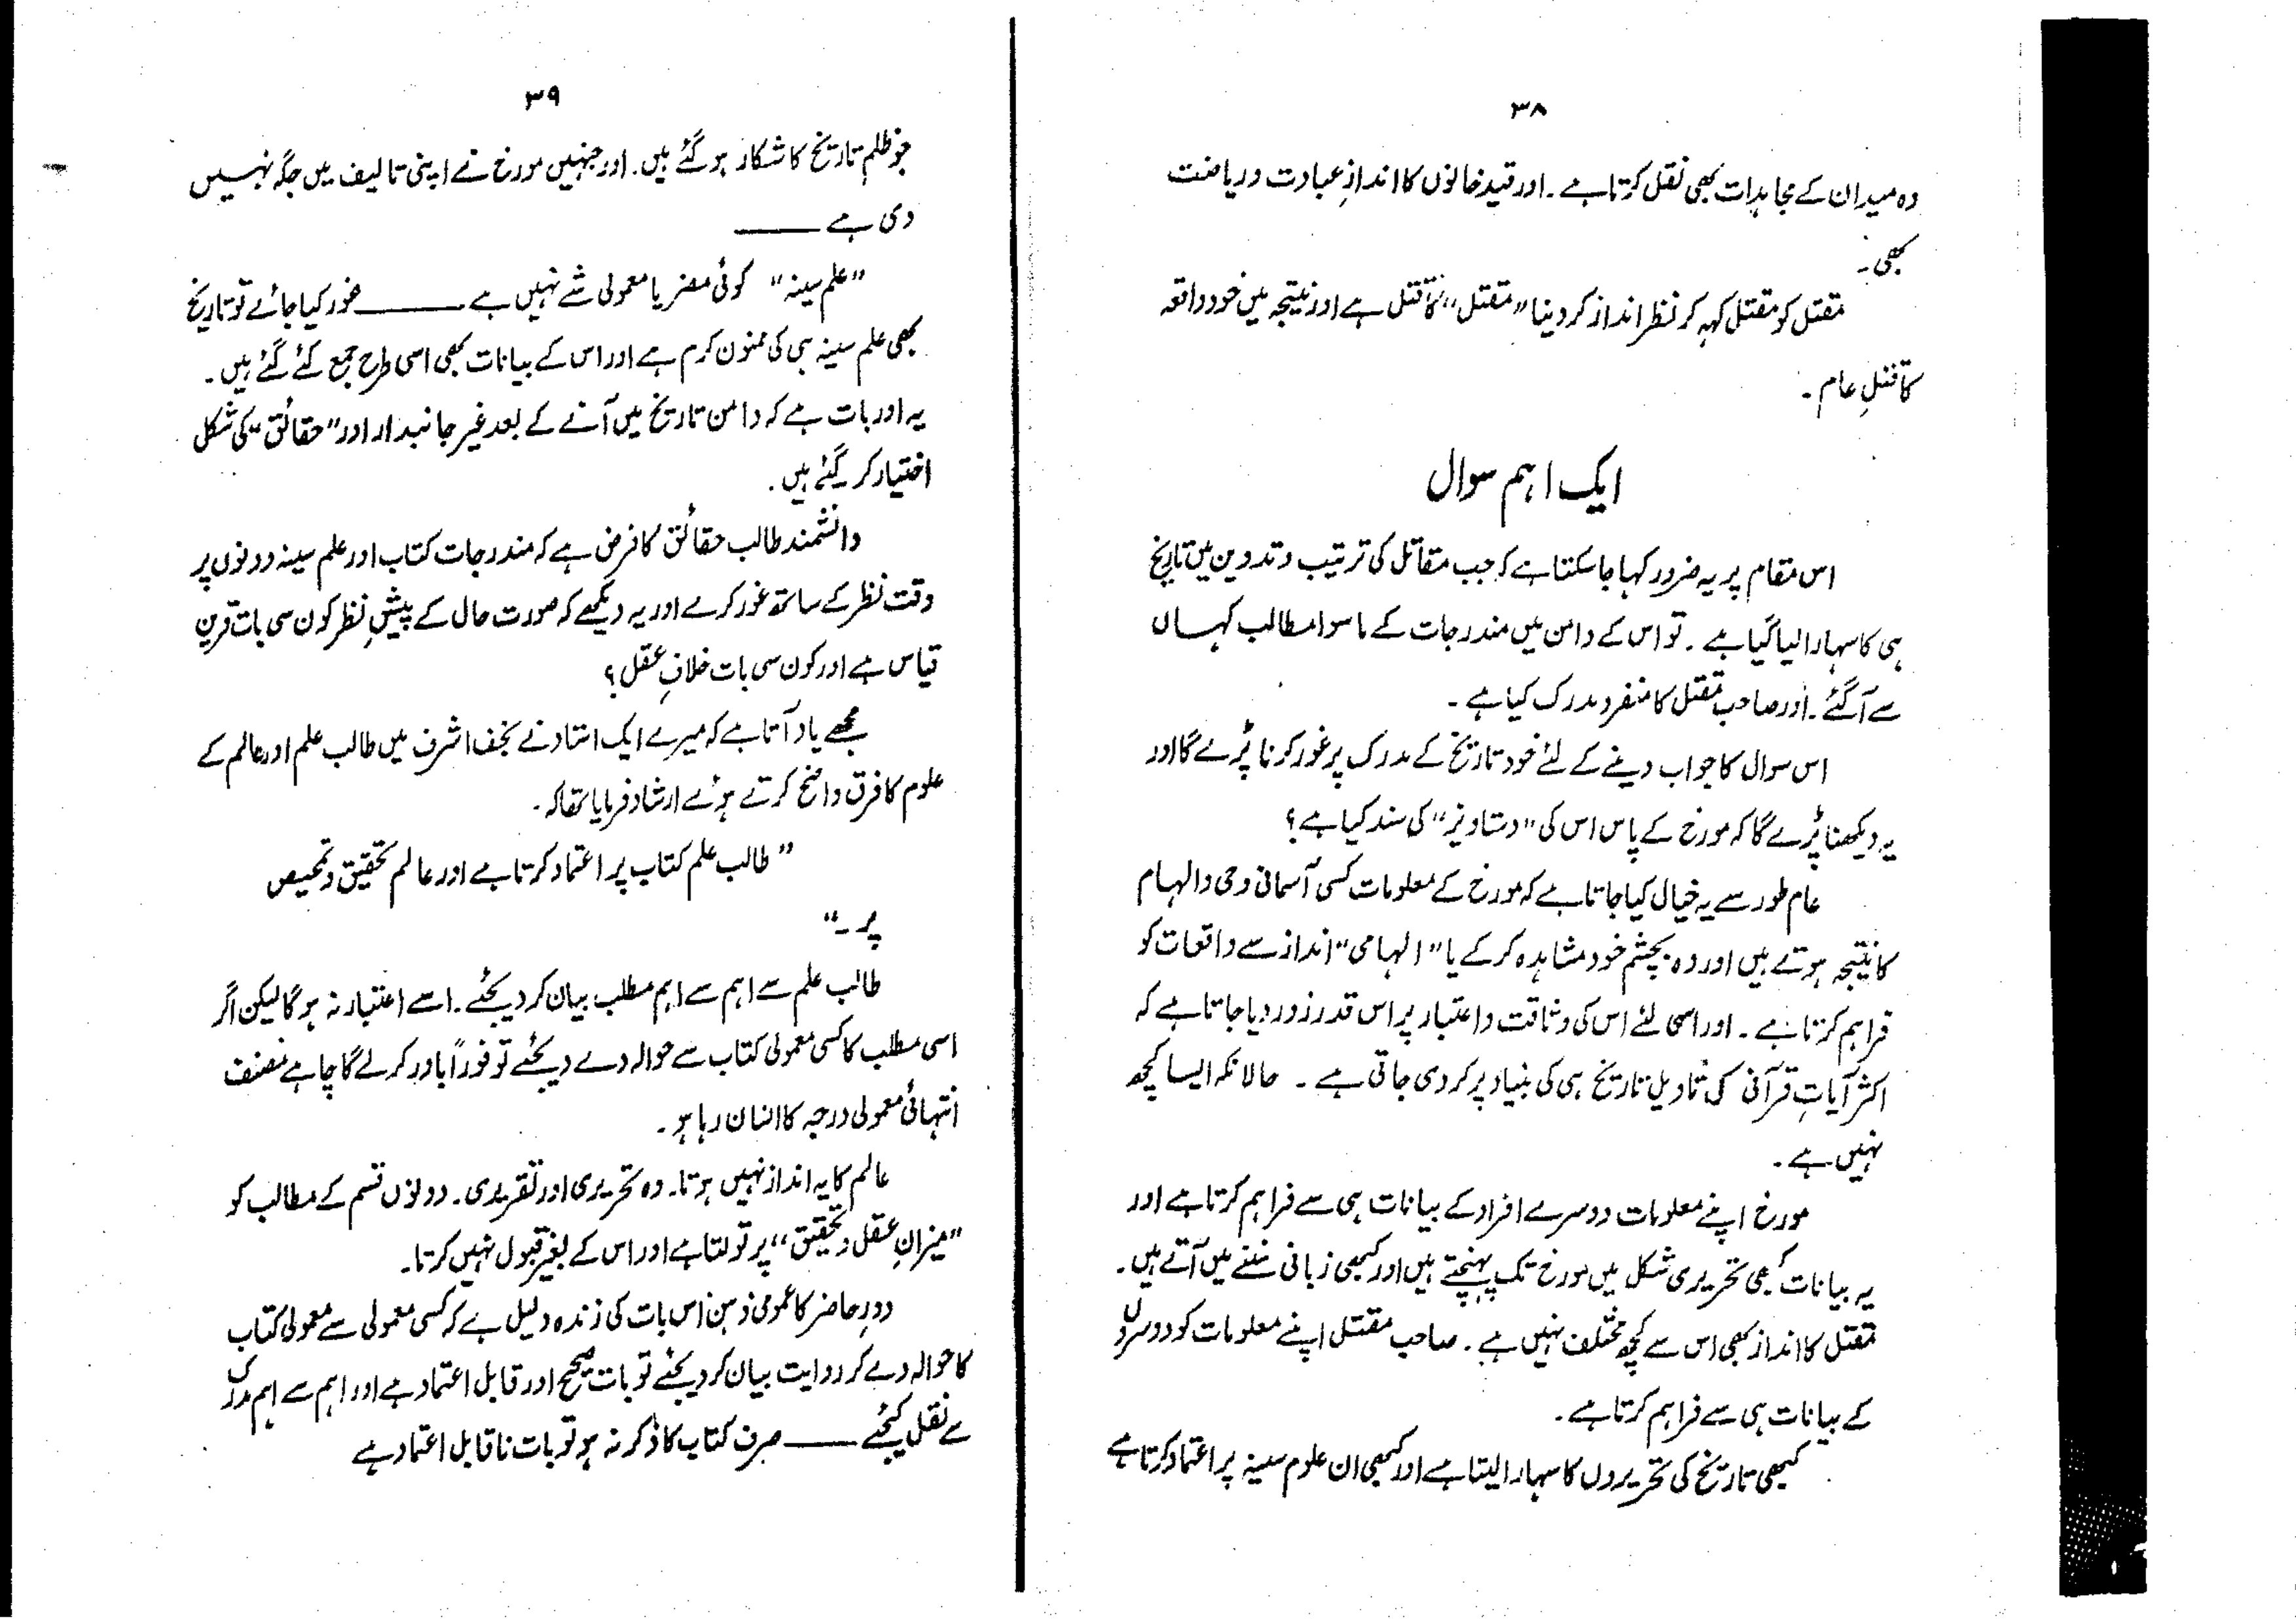 ۳۸
وہ میدان کے مجاہدات بھی نقل کرتا ہے۔ اور قید خانوں کا اندازِ عبادت و ریاضت
بھی۔
مقتل کو مقتل کہہ کر نظر انداز کر دینا "مقتل" کا قتل ہے اور نتیجہ میں خود واقعہ
کا قتلِ عام۔
ایک اہم سوال
اس مقام پر یہ ضرور کہا جا سکتا ہے کہ جب مقاتل کی ترتیب و تدوین میں تاریخ
ہی کا سہارا لیا گیا ہے۔ تو اس کے دامن میں مندرجات کے ماسوا مطالب کہاں
سے آگئے۔ اور صاحب مقتل کا منفرد مدرک کیا ہے۔
اس سوال کا جواب دینے کے لئے خود تاریخ کے مدرک پر غور کرنا پڑے گا اور
یہ دیکھنا پڑے گا کہ مورخ کے پاس اس کی "دستاویز" کی سند کیا ہے؟
عام طور سے یہ خیال کیا جاتا ہے کہ مورخ کے معلومات کسی آسمانی وحی و الہام
کا نتیجہ ہوتے ہیں اور وہ بچشم خود مشاہدہ کر کے یا "الہامی" انداز سے واقعات کو
فراہم کرتا ہے۔ اور اسی لئے اس کی وثاقت و اعتبار پر اس قدر زور دیا جاتا ہے کہ
اکثر آیاتِ قرآنی کی تاویل تاریخ ہی کی بنیاد پر کر دی جاتی ہے۔ حالانکہ ایسا کچھ
نہیں ہے۔
مورخ اپنے معلومات دوسرے افراد کے بیانات ہی سے فراہم کرتا ہے اور
یہ بیانات کبھی تحریری شکل میں مورخ تک پہنچتے ہیں اور کبھی زبانی سننے میں آتے ہیں۔
مقتل کا انداز بھی اس سے کچھ مختلف نہیں ہے۔ صاحب مقتل اپنے معلومات کو دوسروں
کے بیانات ہی سے فراہم کرتا ہے۔
کبھی تاریخ کی تحریروں کا سہارا لیتا ہے اور کبھی ان علوم سینہ پر اعتماد کرتا ہے
۳۹
جو ظلم تاریخ کا شکار ہو گئے ہیں۔ اور جنہیں مورخ نے اپنی تالیف میں جگہ نہیں
دی ہے ——
"علم سینہ" کوئی مضر یا معمولی شے نہیں ہے —— غور کیا جائے تو تاریخ
بھی علم سینہ ہی کی ممنون کرم ہے اور اس کے بیانات بھی اسی طرح جمع کئے گئے ہیں۔
یہ اور بات ہے کہ دامن تاریخ میں آنے کے بعد غیر جانبدار اور "حقائق" کی شکل
اختیار کر گئے ہیں۔
دانشمند طالب حقائق کا فرض ہے کہ مندرجات کتاب اور علم سینہ دونوں پر
دقت نظر کے ساتھ غور کرے اور یہ دیکھے کہ صورت حال کے پیشِ نظر کون سی بات قرین
قیاس ہے اور کون سی بات خلافِ عقل؟
مجھے یاد آتا ہے کہ میرے ایک استاد نے نجف اشرف میں طالب علم اور عالم کے
علوم کا فرق واضح کرتے ہوئے ارشاد فرمایا تھا کہ۔
"طالب علم کتاب پر اعتماد کرتا ہے اور عالم تحقیق و تمحیص
پر۔"
طالب علم سے اہم سے اہم مطلب بیان کر دیجئے۔ اسے اعتبار نہ ہوگا لیکن اگر
اسی مطلب کا کسی معمولی کتاب سے حوالہ دے دیجئے تو فوراً باور کر لے گا چاہے مصنف
انتہائی معمولی درجہ کا انسان رہا ہو۔
عالم کا یہ انداز نہیں ہوتا۔ وہ تحریری اور تقریری۔ دونوں قسم کے مطالب کو
"میزانِ عقل و تحقیق" پر تولتا ہے اور اس کے بغیر قبول نہیں کرتا۔
دورِ حاضر کا عمومی ذہن اس بات کی زندہ دلیل ہے کہ کسی معمولی سے معمولی کتاب
کا حوالہ دے کر روایت بیان کر دیجئے تو بات صحیح اور قابل اعتماد ہے اور اہم سے اہم مدرک
سے نقل کیجئے —— صرف کتاب کا ذکر نہ ہو تو بات ناقابل اعتماد ہے